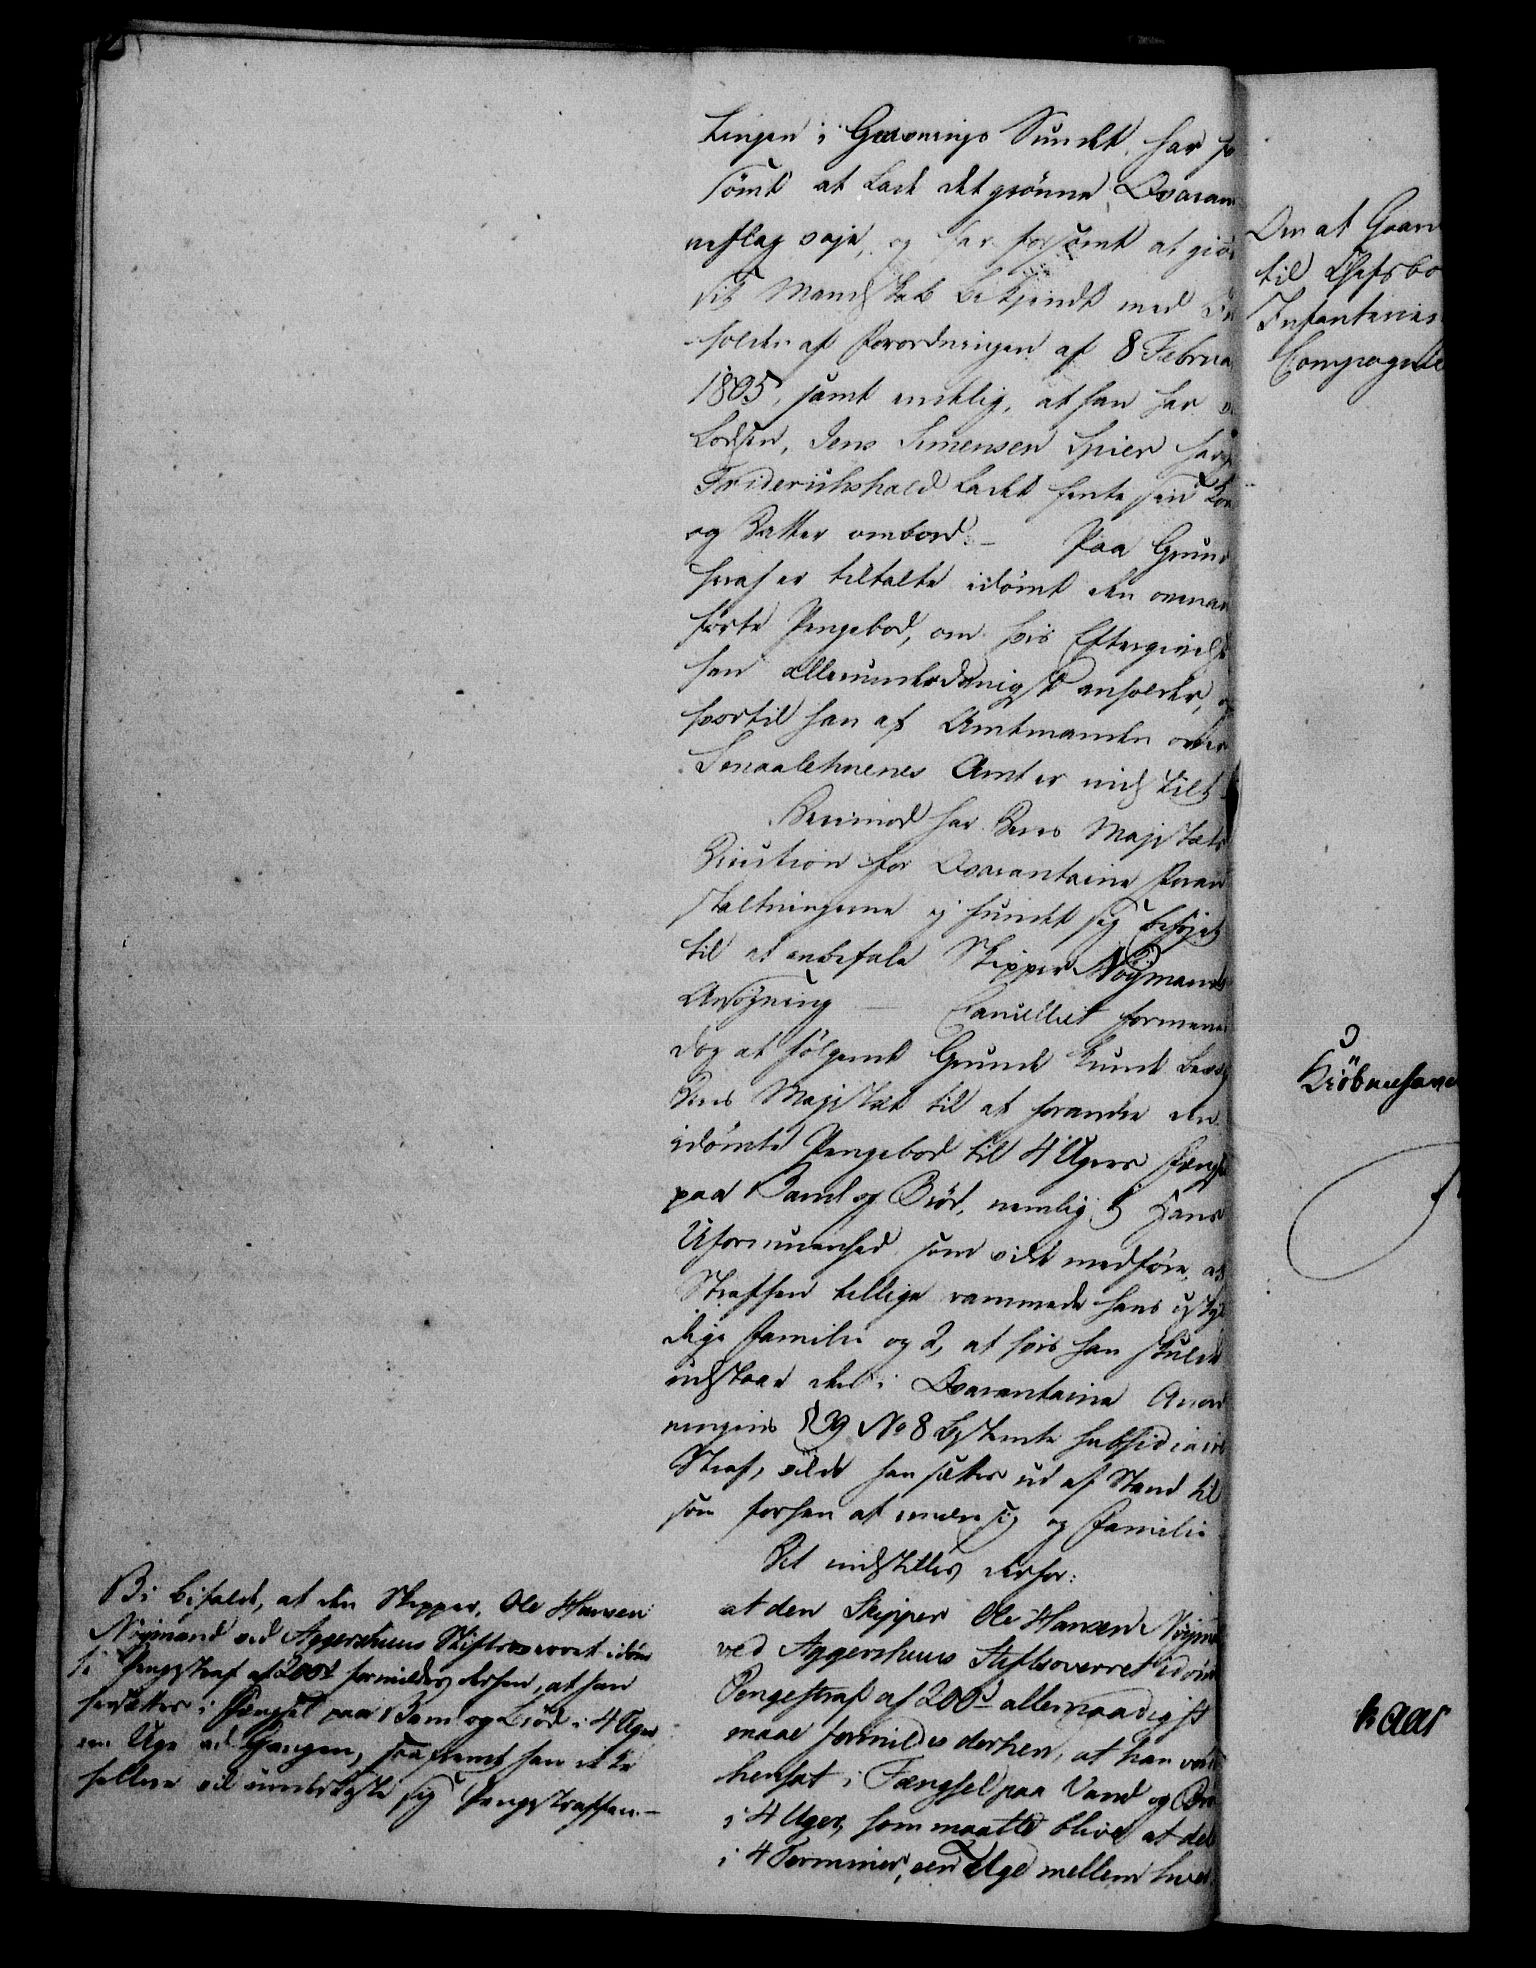 Lingen i Gravnings Sundet har
sömt at lade det grönne Qvaran
neflag vaje, og har forsömt at giö
sit Mandskab bekjendt med
holdet af Forordningen af 8 Februa
1805, samt endelig, at han har
Lodsen, Jens Simensen Spier fra
Friderichshald ladet hente sin
og Datter ombord. – Paa Grund
heraf er tiltalte idömt den omman
förte Pengebod, om hvis Eftergivelse
han allerunderdanigst anholder, og
hvortil han af Amtmanden over
Smaalehnenes Amt er indstilt.
Derimod har Deres Majestæts
Direction for Qvarantaine Foran
staltningerne ej fundet sig beföjet
til at anbefale Skipper Nöymands
Ansögning – Cancelliet formener
dog at fölgende Grunde kunde bevæge
Deres Majestæt til at forandre den
idömte Pengebod til 4 Ugers Fængsel
paa Vand og Bröd, nemlig: 1, Hans
Uformuenhed som vilde medföre, at
Straffen tillige rammede hans uskyl
dige Familie og 2, at hvis han skulde
udstaae den i Qvarantaine Anord
ningens § 39 No 8 bestemte subsidiaire
Straf, vilde han sættes ud af Stand til
som forhen at ernære sig og Familie
Det indstilles derfor:
at den Skipper Ole Hansen Nöyma
ved Aggershuus Stiftsoverret idöm
Pengestraf af 200rd allernaadigst
maae formildes derhen, at han vorde
hensat i Fængsel paa Vand og Brö
i 4 Uger, som maatte blive at del
i 4 Terminer, een Uge mellem hver
Vi bifalde, at den Skipper, Ole Hansen
Nöimand ved Aggershuus Stiftsoverret idöm
te Pengestraf af 200rd formildes derhen, at han
hensættes i Fængsel paa Vand og Bröd i 4 Uger
een Uge ad Gangen, saafremt han ikke
hellere vil underkaste sig Pengestraffen. –
Om at Gaar
til Chefsbo
Infanterie
Compagnie
Kiöbenhavn
kaas